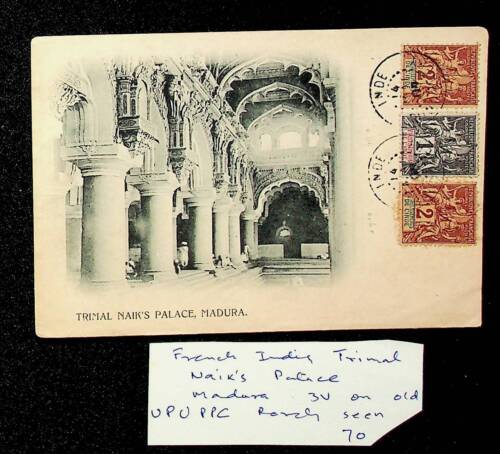 INDE
14
INDE
14
2
1
2
TRIMAL NAIK'S PALACE, MADURA.
French India Trimal
Naik's Palace
Madura 3V on old
UPU PPC Rarely seen
70